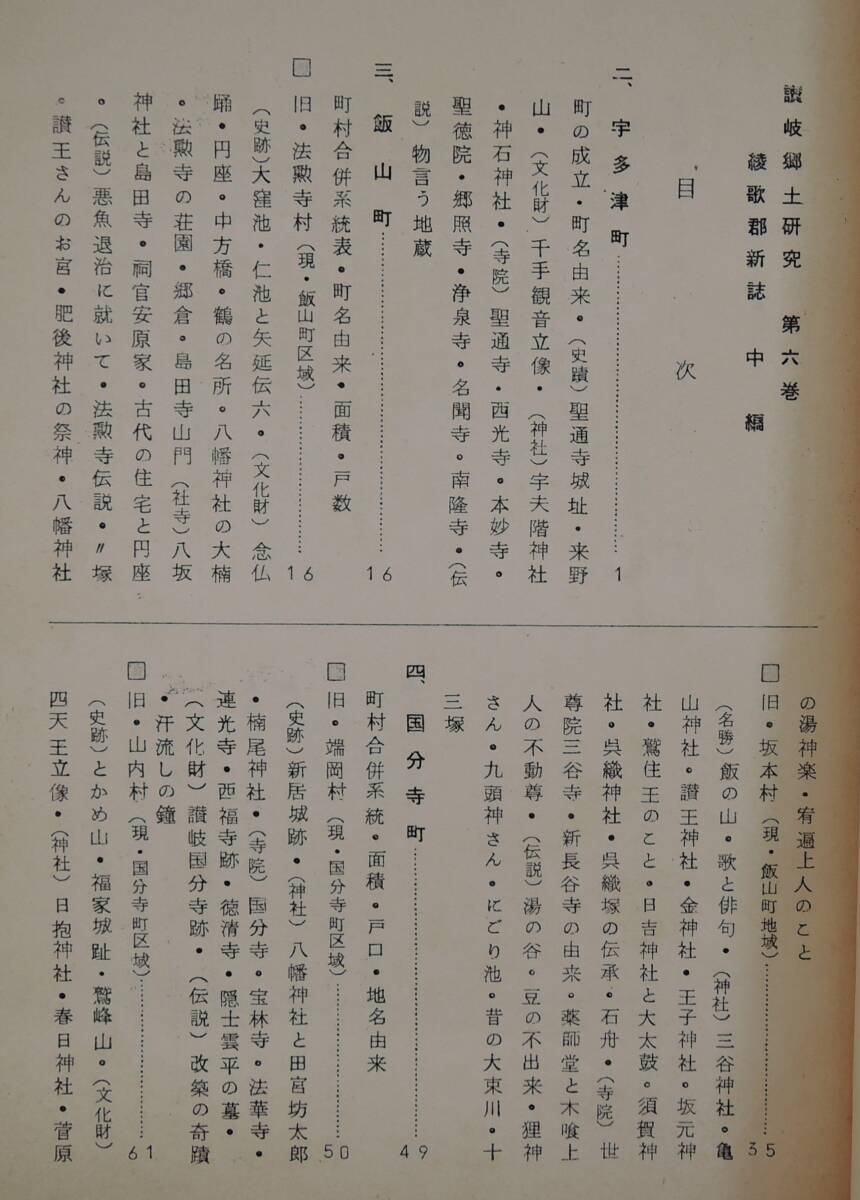 讃岐郷土研究　第六巻
綾歌郡新誌　中編
目次
二、宇多津町…………1
町の成立・町名由来・（史蹟）聖通寺城址・来野
山・（文化財）千手観音立像・（神社）宇夫階神社
・神石神社・（寺院）聖通寺・西光寺・本妙寺・
聖徳院・郷照寺・浄泉寺・名聞寺・南隆寺・（伝
説）物言う地蔵
三、飯山町…………16
町村合併系統表・町名由来・面積・戸数
□旧・法勲寺村（現・飯山町区域）…………16
（史跡）大窪池・仁池と矢延伝六・（文化財）念仏
踊・円座・中方橋・鶴の名所・八幡神社の大楠
・法勲寺の荘園・郷倉・島田寺山門（社寺）八坂
神社と島田寺・祠官安原家・古代の住宅と円座
・（伝説）悪魚退治に就いて・法勲寺伝説・〃塚
・讃王さんのお宮・肥後神社の祭神・八幡神社
の湯神楽・宥遍上人のこと
□旧・坂本村（現・飯山町地域）…………35
（名勝）飯の山・歌と俳句・（神社）三谷神社・亀
山神社・讃王神社・金神社・王子神社・坂元神
社・鷲住王のこと・日吉神社と大太鼓・須賀神
社・呉織神社・呉織塚の伝承・石舟・（寺院）世
尊院三谷寺・新長谷寺の由来・薬師堂と木喰上
人の不動尊・（伝説）湯の谷・豆の不出来・狸神
さん・九頭神さん・にごり池・昔の大束川・十
三塚
四、国分寺町…………49
町村合併系統・面積・戸口・地名由来
□旧・端岡村（現・国分寺町区域）…………50
（史跡）新居城跡・（神社）八幡神社と田宮坊太郎
・楠尾神社・（寺院）国分寺・宝林寺・法華寺・
連光寺・西福寺跡・徳清寺・隠士雲平の墓・
（文化財）讃岐国分寺跡・（伝説）改築の奇蹟
・汗流しの鐘
□旧・山内村（現・国分寺町区域）…………61
（史跡）とかめ山・福家城趾・鷲峰山・（文化財）
四天王立像・（神社）日抱神社・春日神社・菅原